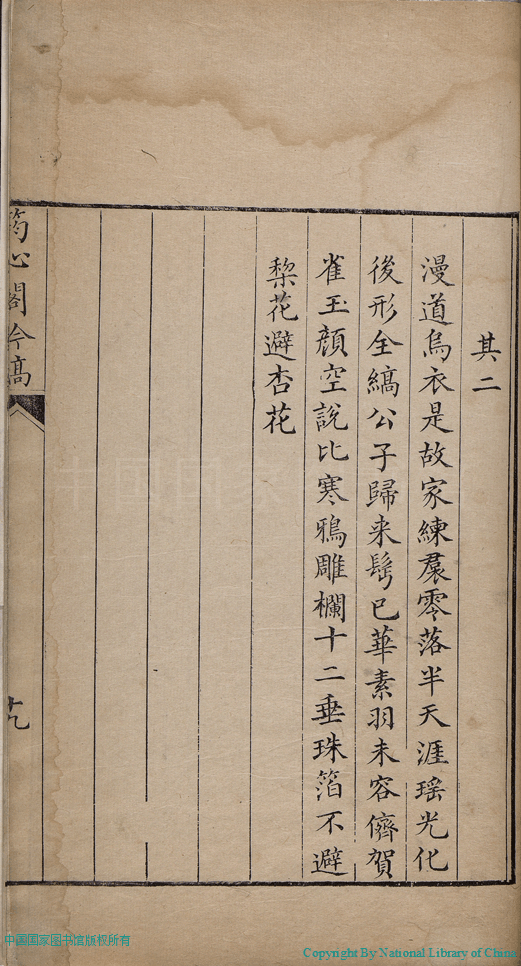 其二
漫道烏衣是故家練裠零落半天涯瑶光化
後形全縞公子歸来髩已華素羽未容儕賀
雀玉顔空說比寒鴉雕欄十二垂珠箔不避
棃花避杏花
药心閣今髙
十九
中国国家图书馆版权所有
Copyright By National Library of China